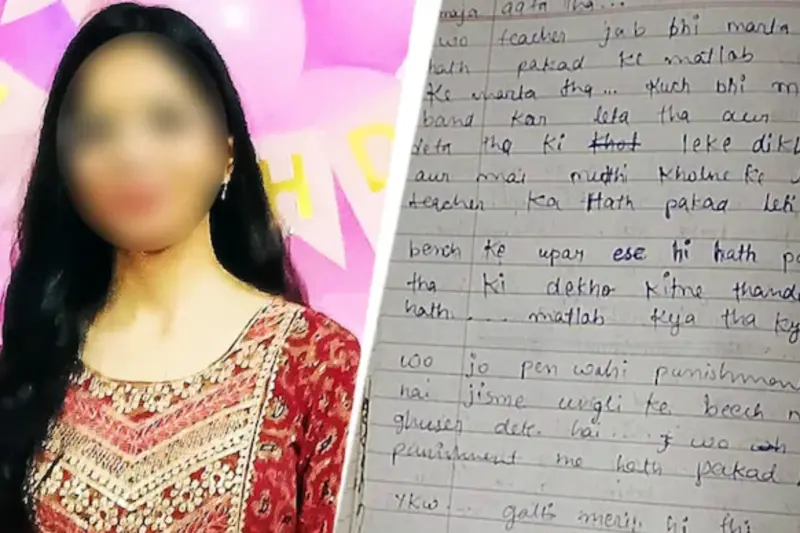 H D
maja aata tha...
wo teacher jab bhi marta
hath pakad ke matlab
ke marta tha... kuch bhi m
band kar leta tha aur
deta tha ki khol leke dik
aur mai mudhi kholne ke
teacher ka Hath pakad leti
bench ke upar ese hi hath pa
tha ki dekho kitne thand
hath..... matlab kya tha ky
wo jo pen wahi punishmen
hai jisme ungli ke beech m
ghusa dete hai.... wo
punishment me hath pakad
ykw... galti meri hi thi